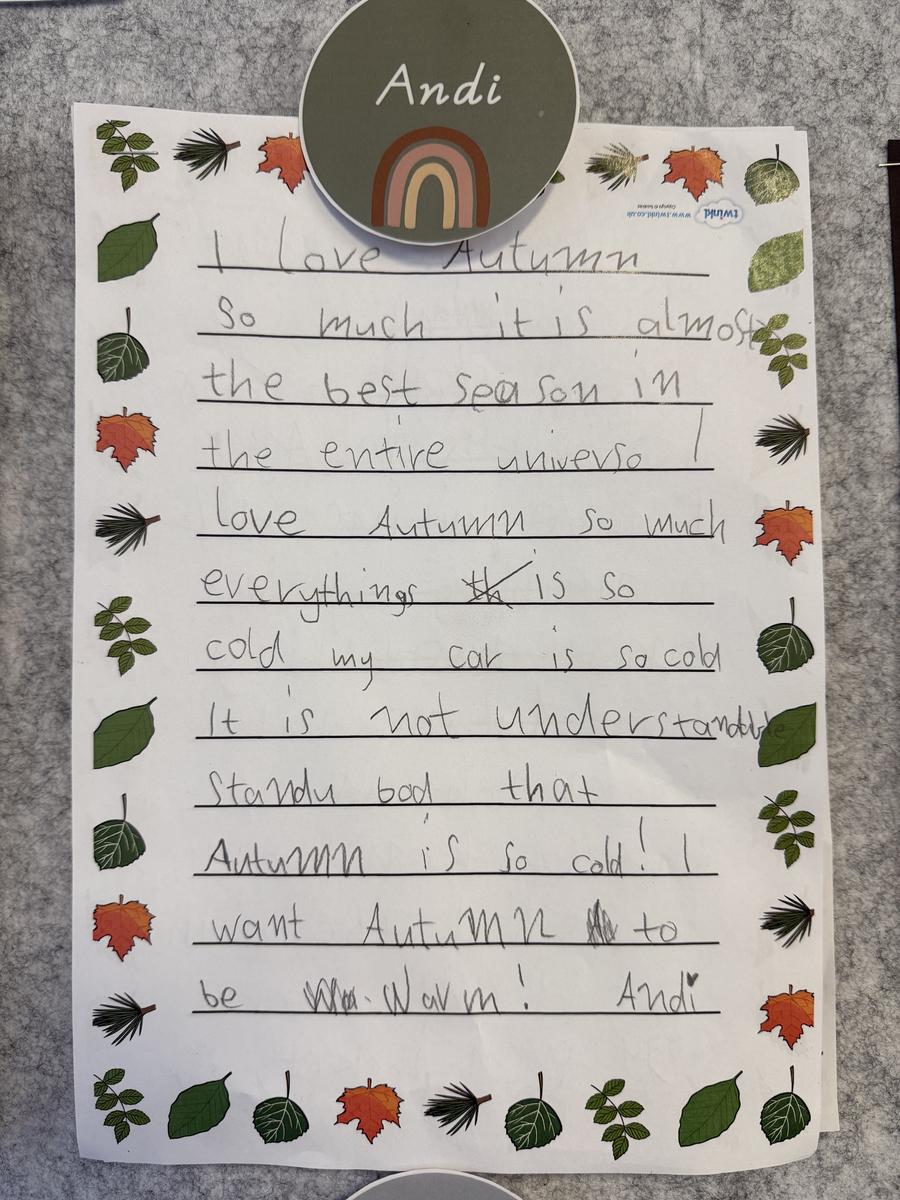 Andi
twinkl
www.twinkl.co.uk
I love Autumn
so much it is almost
the best season in
the entire universo I
love Autumn so much
everythings th is so
cold my car is so cold
It is not understandable
standu bad that
Autumn is so cold! I
want Autumn to
be Warm! Andi